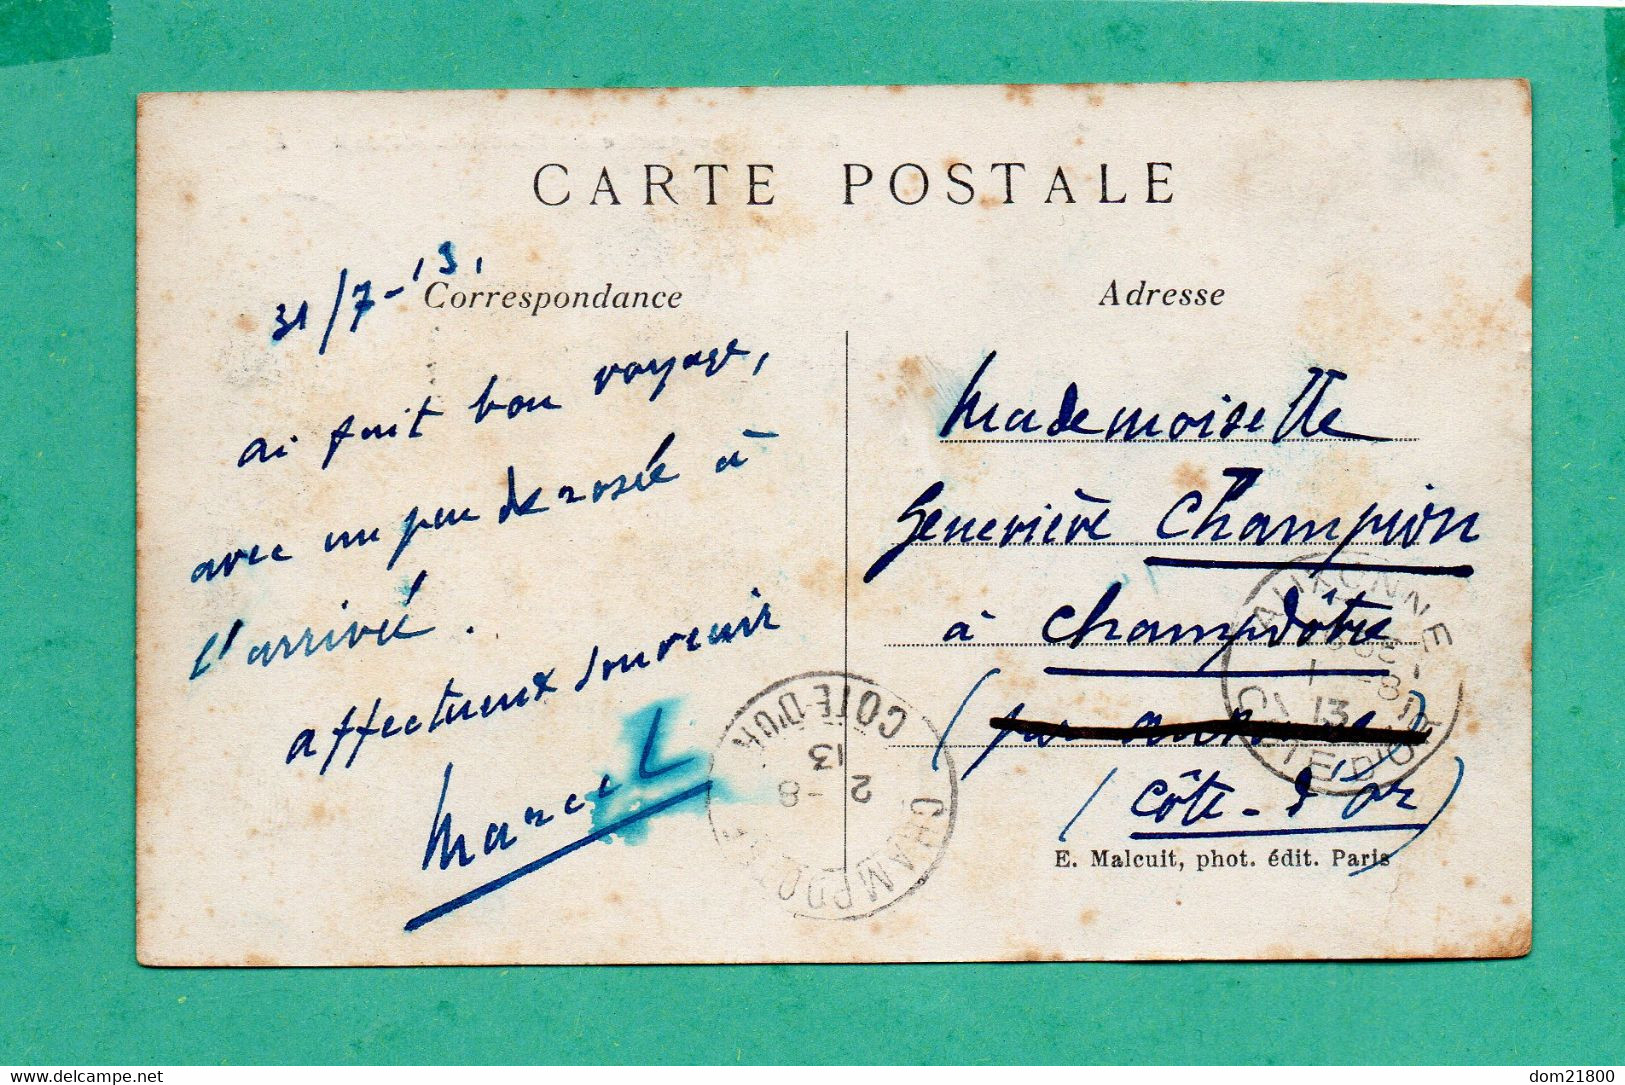 CARTE POSTALE
31/7-13.
Correspondance
ai fait bon voyage,
avec un peu de rosée à
l'arrivée.
affectueux souvenir
Marcel
Adresse
Mademoiselle
Geneviève Champion
à Champdôtre
(par Auxonne)
(Côte-d'Or)
E. Malcuit, phot. édit. Paris
AUXONNE
1 -8
13
CÔTE D'OR
CHAMPDOTRE
2 -8
13
COTE-D'OR
delcampe.net
dom21800